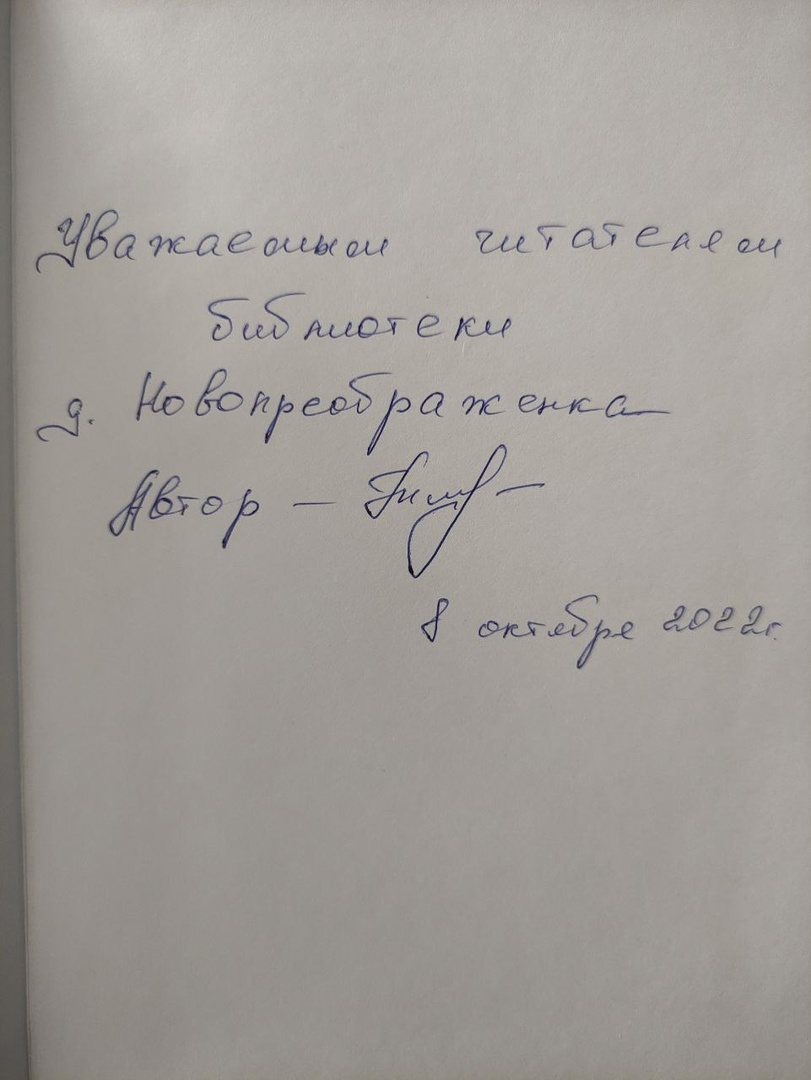 Уважаемым читателям
библиотеки
д. Новопреображенка
Автор —
8 октября 2022г.